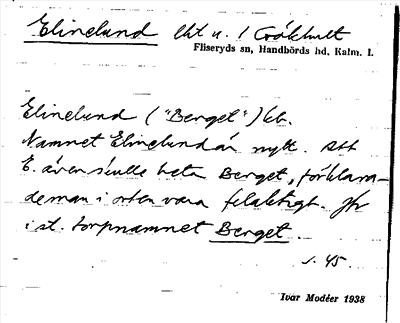 Elinelund lht u. 1 Kråkhult
Fliseryds sn, Handbörds hd, Kalm. l.
Elinelund ("Berget") lht.
Namnet Elinelund är nytt. Att
E. även skulle heta Berget, förklara-
de man i orten vara felaktigt. Jfr
i st. torpnamnet Berget.
s. 45.
Ivar Modéer 1938